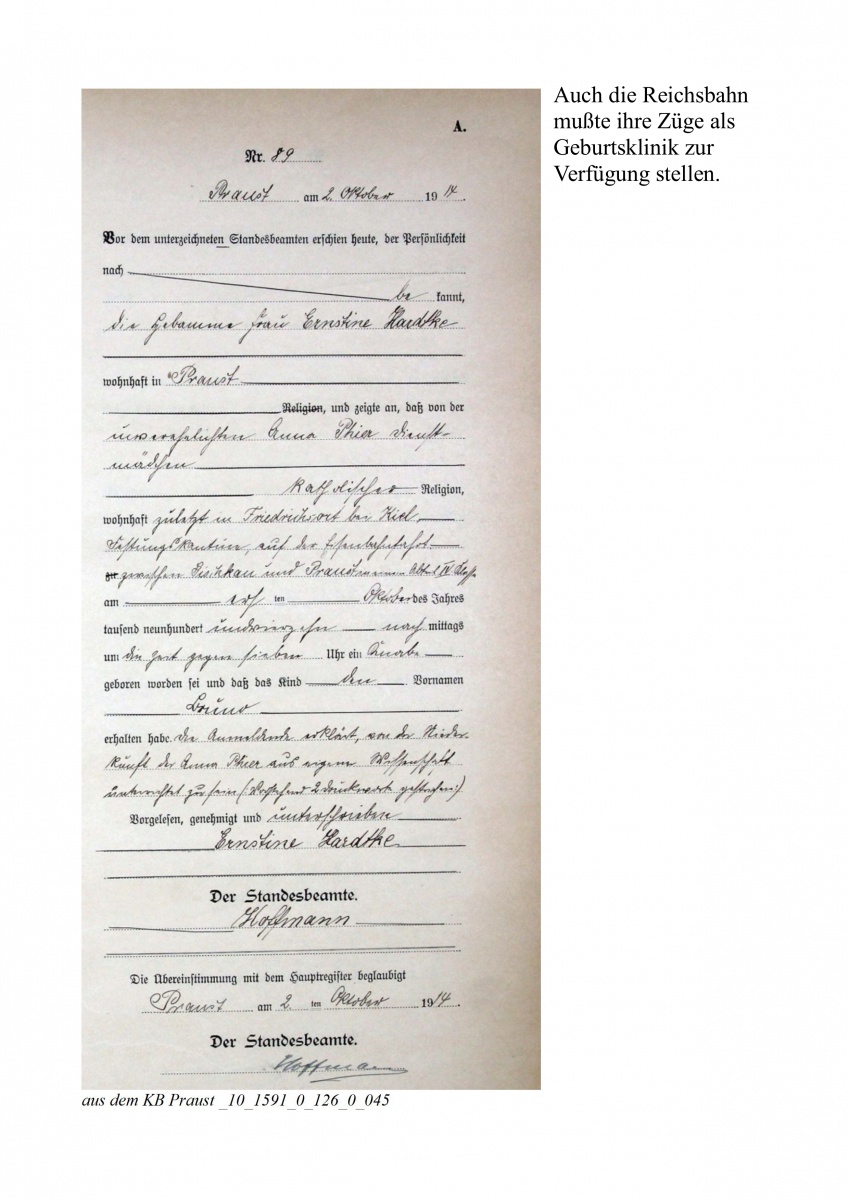 Auch die Reichsbahn
mußte ihre Züge als
Geburtsklinik zur
Verfügung stellen.
A.
Nr. 89
Praust am 2. Oktober 1914.
Vor dem unterzeichneten Standesbeamten erschien heute, der Persönlichkeit
nach
be kannt,
die Hebamme Frau Ernstine Hardtke
wohnhaft in Praust
Religion, und zeigte an, daß von der
unverehelichten Anna Dienst-
mädchen
katholischer Religion,
wohnhaft zuletzt in Friedrichsort bei Kiel,
Festungskantine, auf der Eisenbahnfahrt
zu zwischen und Praust Abteil IV Klasse
am ers ten Oktober des Jahres
tausend neunhundert undvierzehn nach mittags
um die Zeit gegen sieben Uhr ein Knabe
geboren worden sei und daß das Kind den Vornamen
Bruno
erhalten habe. Die Anmeldende erklärt, von der Nieder-
kunft der Anna aus eigener Wissenschaft
unterrichtet zu sein (Vorstehend 2 Druckworte gestrichen)
Vorgelesen, genehmigt und unterschrieben
Ernstine Hardtke
Der Standesbeamte.
Hoffmann
Die Übereinstimmung mit dem Hauptregister beglaubigt
Praust am 2. ten Oktober 1914.
Der Standesbeamte.
Hoffmann
aus dem KB Praust _10_1591_0_126_0_045